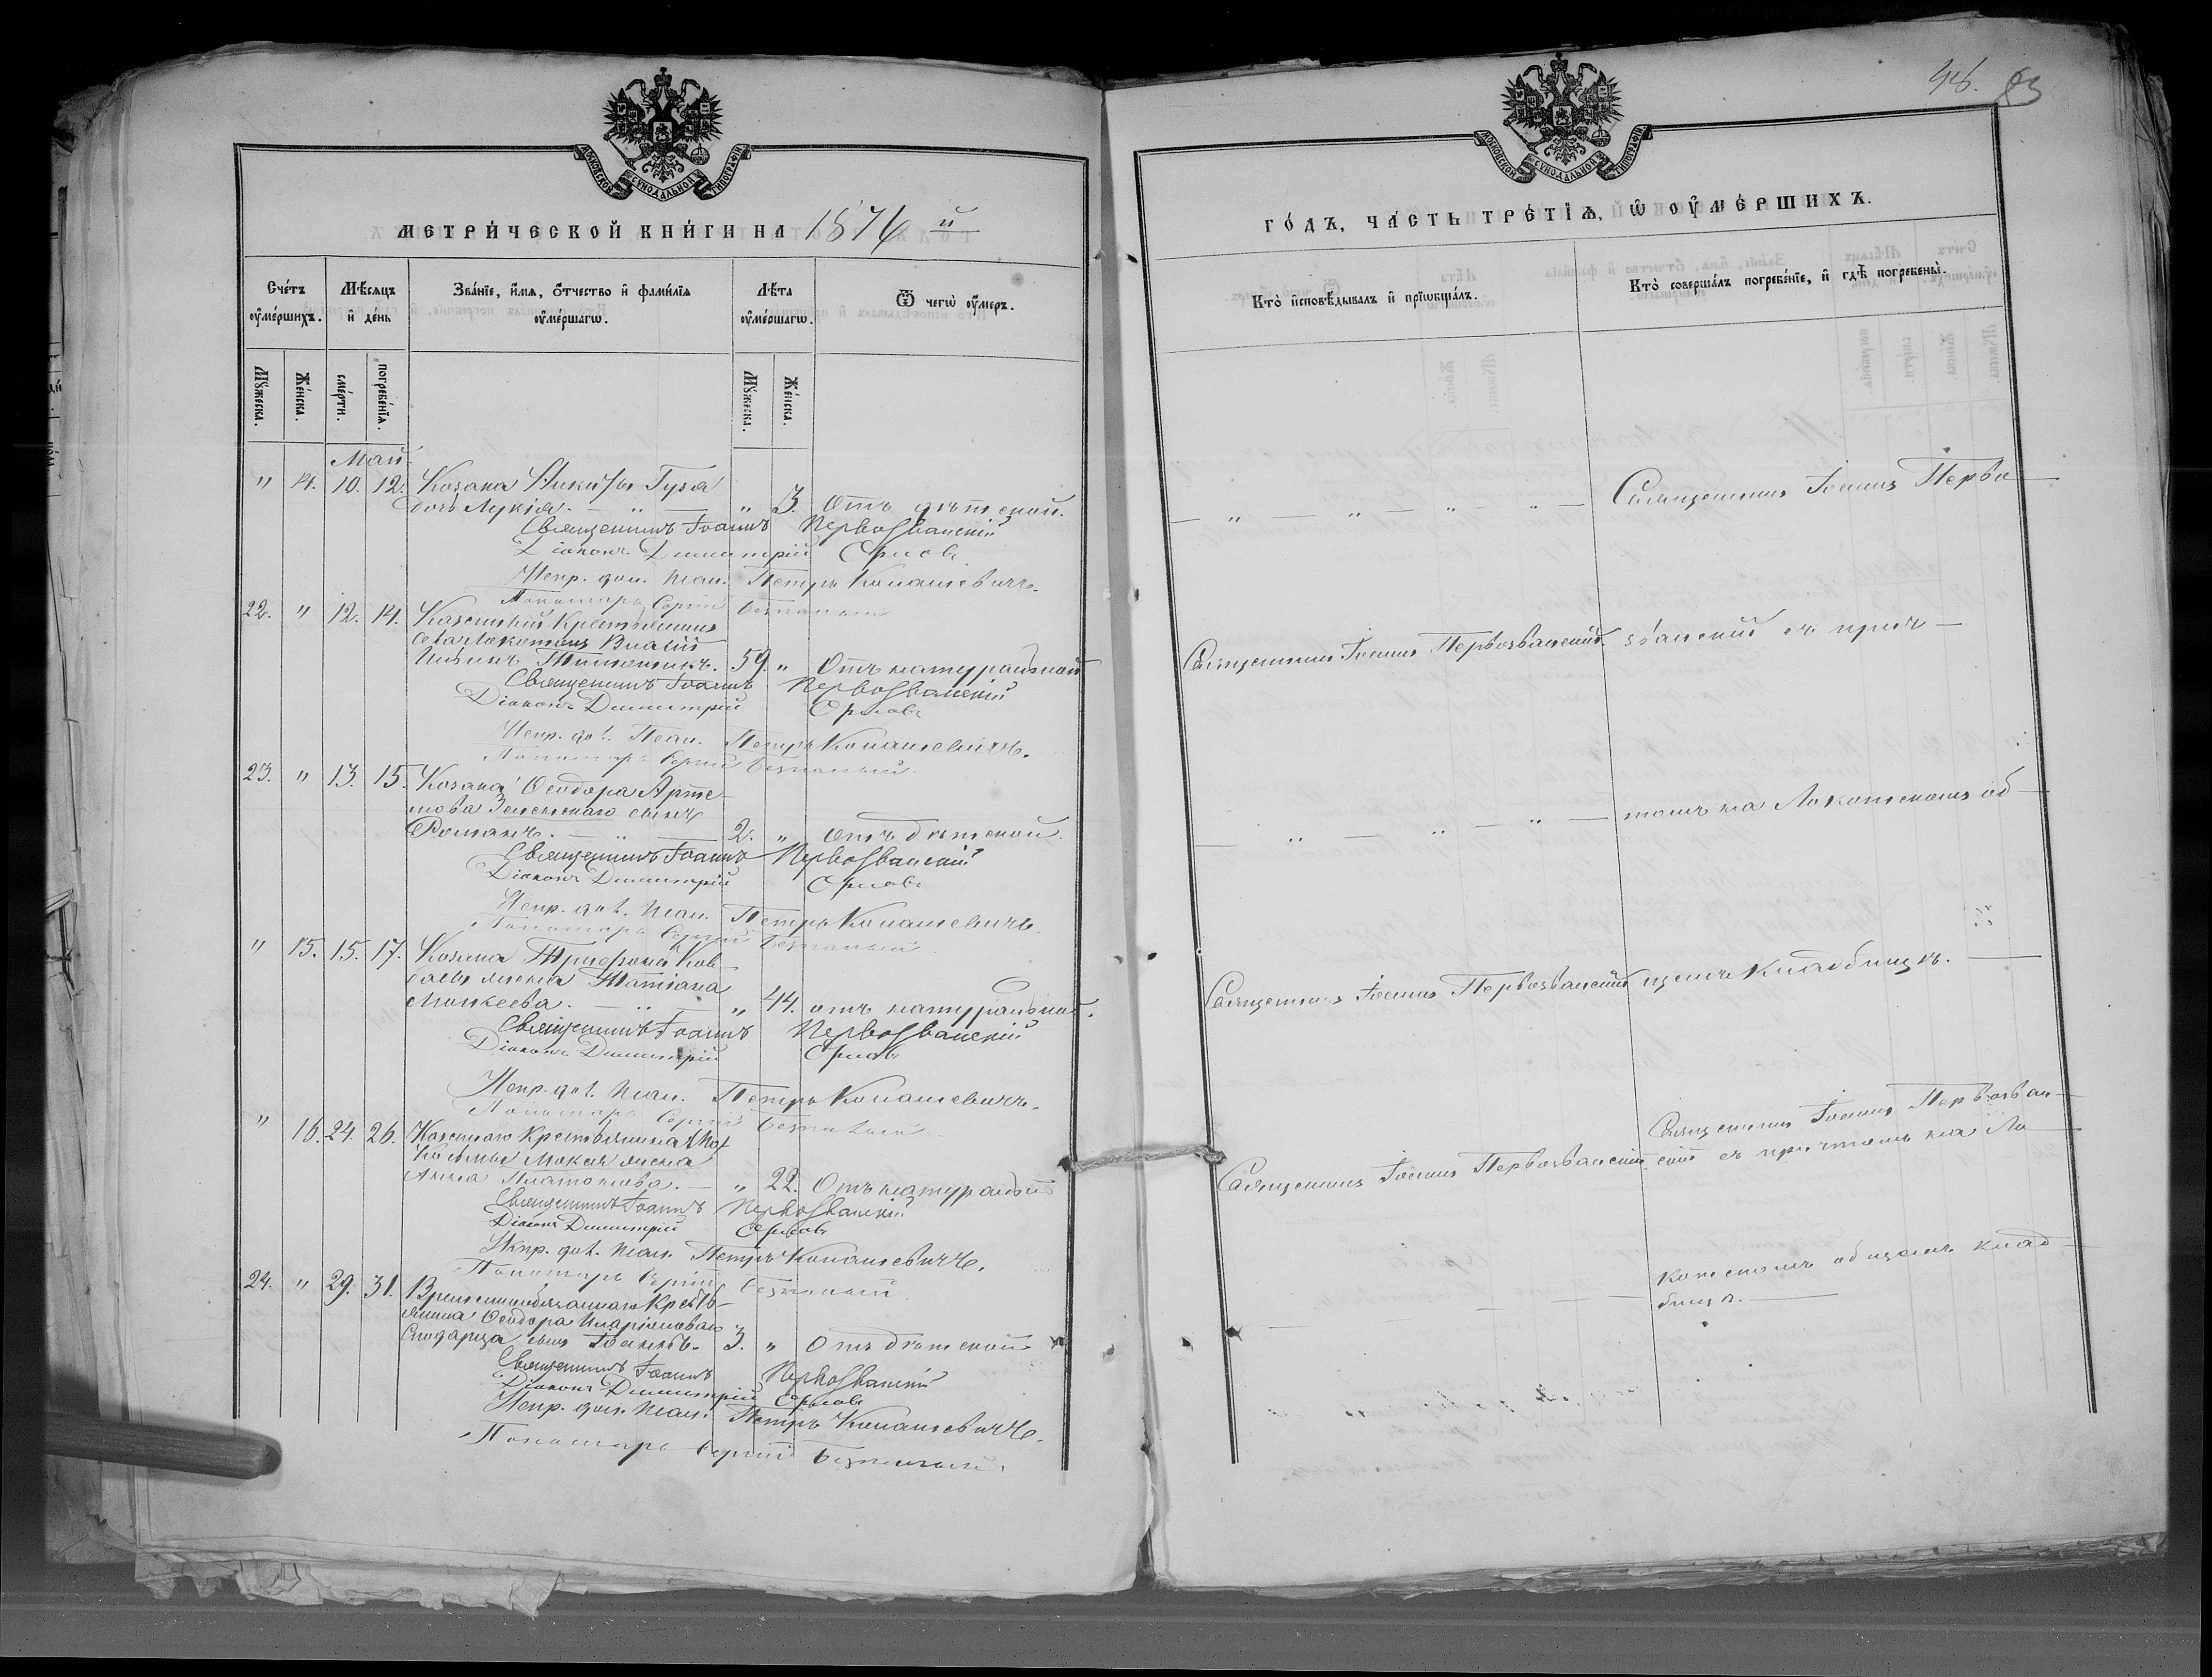 МОСКОВСКОЙ СѴНОДАЛЬНОЙ ТИПОГРАФІИ
МЕТРИ́ЧЕСКОЙ КНИ́ГИ НА 1876 й
Сче́тъ ѹ҆ме́ршихъ.
Мѣ́сяцъ и҆ де́нь
Зва́нїе, и҆́мѧ, ѻ҆́тчество и҆ фами́лїѧ ѹ҆ме́ршагѡ.
Лѣ́та ѹ҆ме́ршагѡ.
Ѿ чегѡ̀ ѹ҆́меръ.
Мꙋ́жеска.
Же́нска.
сме́рти.
погребе́нїѧ.
Мꙋ́жеска.
Же́нска.
Май.
" 14. 10. 12. Козака Никифора Гуза
дочь Лукія. — " — " 3. Отъ дѣтской.
Священникъ Іоаннъ Первозванскій
Діаконъ Димитрій Орловъ
Испр. дол. псал. Петръ Конашевичъ.
Пономарь Сергій
22. " 12. 14. Казенный крестьянинъ
села Локотокъ Власій
Тимошикъ. 59. " Отъ натуральной
Священникъ Іоаннъ Первозванскій
Діаконъ Димитрій Орловъ
Испр. дол. Псал. Петръ Конашевичъ.
Пономарь Сергій
23. " 13. 15. Козака Ѳеодора Арте-
мова Зеленскаго сынъ
Романъ. — " — 2. " Отъ дѣтской.
Священникъ Іоаннъ Первозванскій
Діаконъ Димитрій Орловъ
Испр. дол. псал. Петръ Конашевичъ.
Пономарь Сергій
" 15. 15. 17. Козака Трифона Ков
жена Татіана
Мокеева. — " — " 44. отъ натуральной.
Священникъ Іоаннъ Первозванскій
Діаконъ Димитрій Орловъ
Испр. дол. псал. Петръ Конашевичъ.
Пономарь Сергій
" 16. 24. 26. Казеннаго крестьянина
Козьмы Мокея жена
Анна Платонова. — " 22. Отъ натуральной
Священникъ Іоаннъ Первозванскій
Діаконъ Димитрій Орловъ
Испр. дол. псал. Петръ Конашевичъ.
Пономарь Сергій
24. " 29. 31. Временнообязаннаго кресть-
янина Ѳеодора Иларіонова
сынъ Іоаннъ. 3. " Отъ дѣтской
Священникъ Іоаннъ Первозванскій
Діаконъ Димитрій Орловъ
Испр. дол. псал. Петръ Конашевичъ.
Пономарь Сергій
98. 83
МОСКОВСКОЙ СѴНОДАЛЬНОЙ ТИПОГРАФІИ
ГО́ДЪ, ЧА́СТЬ ТРЕ́ТЇѦ, Ѡ҆ ОУ҆МЕ́РШИХЪ.
Кто̀ и҆сповѣ́дывалъ и҆ прїѡбща́лъ.
Кто̀ соверша́лъ погребе́нїе, и҆ гдѣ̀ погребены̀.
— " — " — " — " —
Священникъ Іоаннъ Перво-
Священникъ Іоаннъ Первозванскій.
званскій съ прич-
— " — " — " —
томъ на Локотскомъ об-
Священникъ Іоаннъ Первозванскій
щемъ кладбищѣ. —
Священникъ Іоаннъ Первозван-
Священникъ Іоаннъ Первозванскій
скій съ причтомъ на Ло-
котскомъ общемъ клад-
бищѣ. —